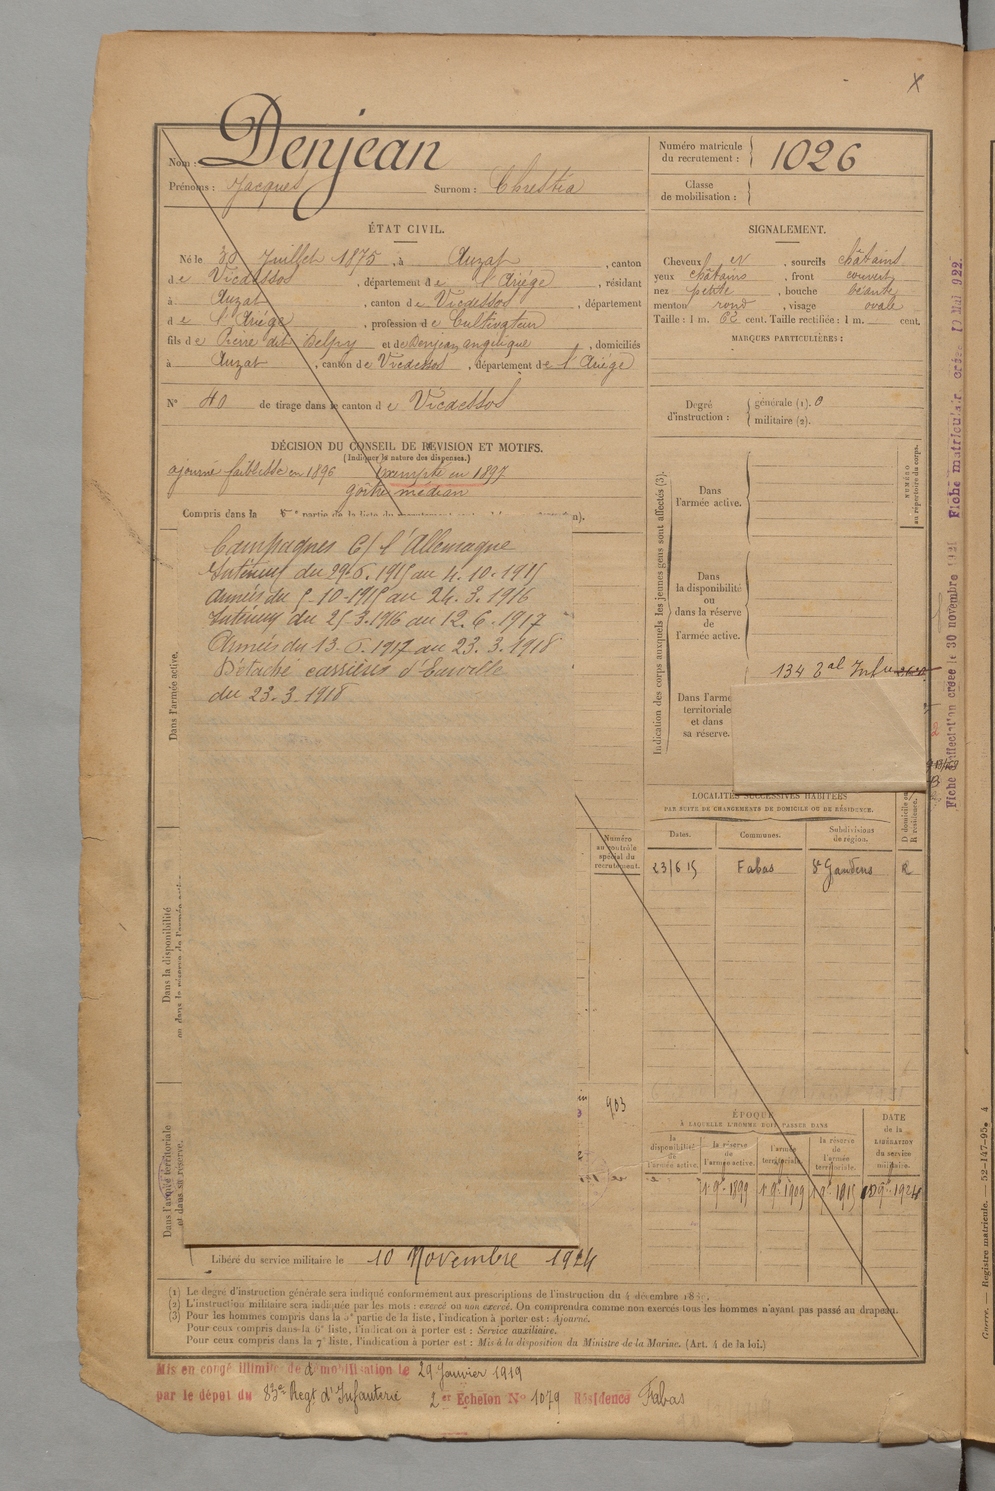 X
Nom : Denjean
Prénoms : Jacques Surnom : Chrestia
Numéro matricule du recrutement : 1026
Classe de mobilisation :
ÉTAT CIVIL.
Né le 30 Juillet 1875, à Auzat, canton
de Vicdessos, département de l'Ariége, résidant
à Auzat, canton de Vicdessos, département
de l'Ariége, profession de Cultivateur
fils de Pierre dit Belpy et de Denjean angelique, domiciliés
à Auzat, canton de Vicdessos, département de l'Ariége
N° 40 de tirage dans le canton de Vicdessos
DÉCISION DU CONSEIL DE RÉVISION ET MOTIFS.
(Indiquer la nature des dispenses.)
ajourné faiblesse en 1896 Exempté en 1897
goître médian
Compris dans la partie de la liste du recrutement
SIGNALEMENT.
Cheveux N, sourcils châtains
yeux châtains, front couvert
nez petite, bouche béante
menton rond, visage ovale
Taille : 1 m. 62 cent. Taille rectifiée : 1 m. cent.
MARQUES PARTICULIÈRES :
Degré d'instruction : générale (1). 0
militaire (2).
Campagnes C/ l'Allemagne
Intérieur du 29.6.1915 au 4.10.1915
Armées du 5-10-1915 au 24.3.1916
Intérieur du 25.3.1916 au 12.6.1917
Armées du 13.6.1917 au 23.3.1918
Détaché carrières d'
du 23.3.1918
Dans l'armée active.
Dans la disponibilité
ou dans la réserve de l'armée active
Dans l'armée territoriale
et dans sa réserve.
Indication des corps auxquels les jeunes gens sont affectés (3).
NUMÉRO
au répertoire du corps.
Dans
l'armée active.
Dans
la disponibilité
ou
dans la réserve
de
l'armée active.
134 Bal Infrie
Dans l'armée
territoriale
et dans
sa réserve.
LOCALITÉS SUCCESSIVES HABITÉES
PAR SUITE DE CHANGEMENTS DE DOMICILE OU DE RÉSIDENCE.
Dates. Communes. Subdivisions de région. D domicile ou R résidence.
23/6 15 Fabas St Gaudens R
Numéro
au contrôle
spécial du
recrutement.
903
ÉPOQUE
À LAQUELLE L'HOMME DOIT PASSER DANS
la disponibilité de l'armée active.
la réserve de l'armée active.
l'armée territoriale.
la réserve de l'armée territoriale.
DATE de la LIBÉRATION du service militaire.
1 9bre 1899 1 9bre 1909 1 9bre 1915 10 9bre 1924
Libéré du service militaire le 10 Novembre 1924
(1) Le degré d'instruction générale sera indiqué conformément aux prescriptions de l'instruction du 4 décembre
(2) L'instruction militaire sera indiquée par les mots : exercé ou non exercé. On comprendra comme non exercés tous les hommes n'ayant pas passé au drapeau.
(3) Pour les hommes compris dans la 5e partie de la liste, l'indication à porter est : Ajourné.
Pour ceux compris dans la 6e liste, l'indication à porter est : Service auxiliaire.
Pour ceux compris dans la 7e liste, l'indication à porter est : Mis à la disposition du Ministre de la Marine. (Art. 4 de la loi.)
Mis en congé illimité de démobilisation le 29 Janvier 1919
par le dépot du 83e Regt d'Infanterie 2er Échelon N° 1079 Résidence Fabas
Guerre. — Registre matricule. — 52-147-95. 4